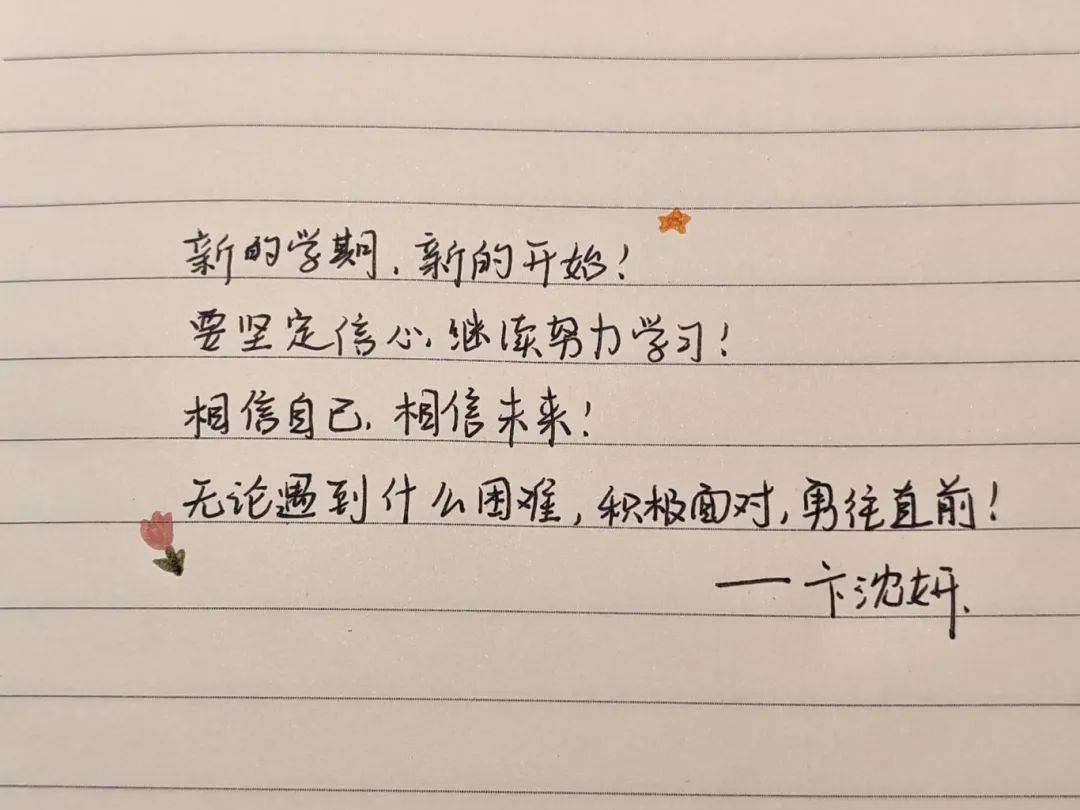 新的学期，新的开始！
要坚定信心，继续努力学习！
相信自己，相信未来！
无论遇到什么困难，积极面对，勇往直前！
——卞沈妍